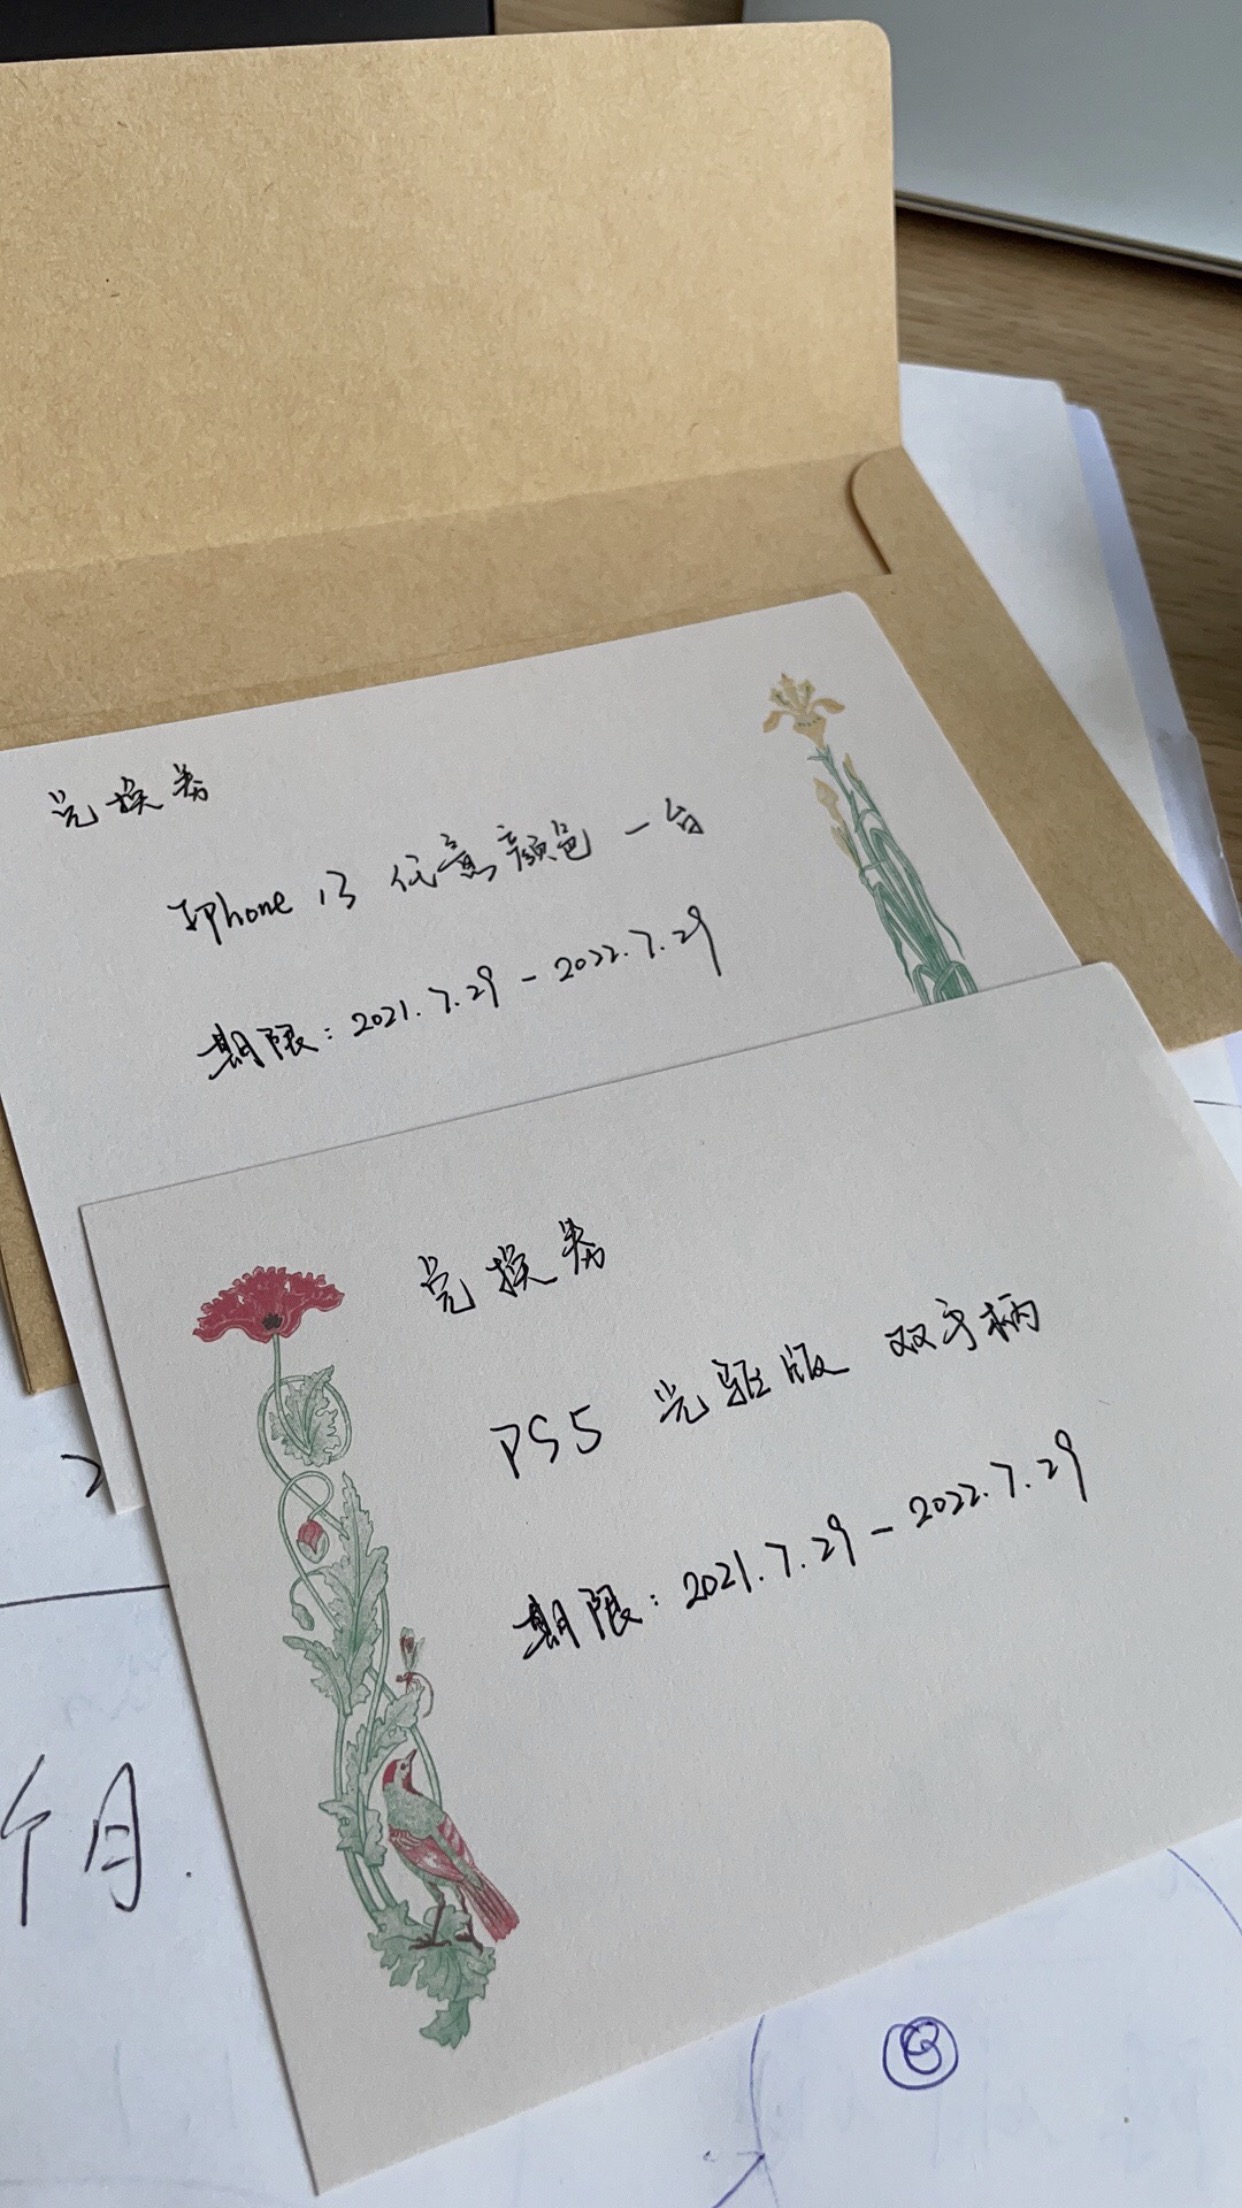 兑换券
iPhone 13 任意颜色 一台
期限：2021.7.29 - 2022.7.29
兑换券
PS5 光驱版 双手柄
期限：2021.7.29 - 2022.7.29
个月.